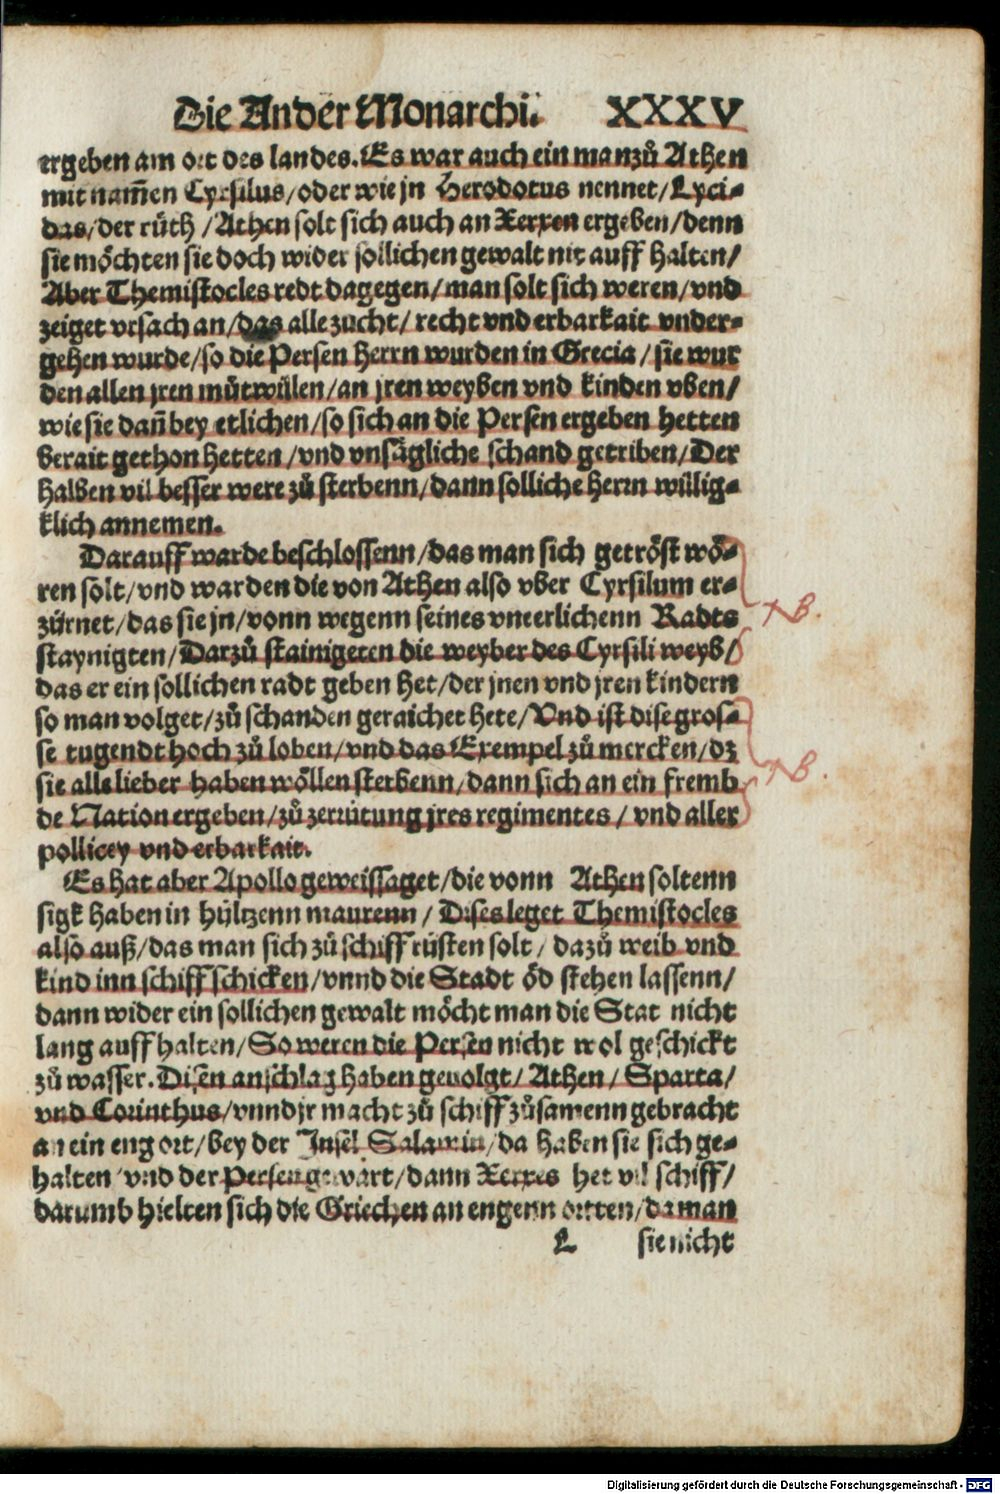 Die Ander Monarchi. XXXV
ergeben am ort des landes. Es war auch ein man zů Athen
mit nam̃en Cyrsilus / oder wie jn Herodotus nennet / Lyci⸗
das / der rüth / Athen solt sich auch an Xerxen ergeben / denn
sie möchten sie doch wider sollichen gewalt nit auff halten /
Aber Themistocles redt dagegen / man solt sich weren / vnd
zeiget vrsach an / das alle zucht / recht vnd erbarkait vnder⸗
gehen wurde / so die Persen Herrn wurden in Grecia / sie wur
den allen jren můtwillen / an jren weyben vnd kinden vben /
wie sie dañ bey etlichen / so sich an die Persen ergeben hetten
berait gethon hetten / vnd vnsägliche schand getriben / Der
halben vil besser were zů sterbenn / dann solliche herrn willig⸗
klich annemen.
Darauff warde beschlossenn / das man sich getröst wö⸗
ren solt / vnd warden die von Athen also vber Cyrsilum er⸗
zürnet / das sie jn / vonn wegenn seines vneerlichenn Radts
NB.
staynigten / Darzů stainigeten die weyber des Cyrsili weyb /
das er ein sollichen radt geben het / der jnen vnd jren kindern
so man volget / zů schanden geraichet hete / Vnd ist dise gros⸗
se tugendt hoch zů loben / vnd das Exempel zů mercken / dz
sie alle lieber haben wöllen sterbenn / dann sich an ein fremb
NB.
de Nation ergeben / zů zerrütung jres regimentes / vnd aller
pollicey vnd erbarkait.
Es hat aber Apollo geweissaget / die vonn Athen soltenn
sigk haben in hültzenn maurenn / Dises leget Themistocles
also auß / das man sich zů schiff rüsten solt / dazů weib vnd
kind inn schiff schicken / vnnd die Stadt öd stehen lassenn /
dann wider ein sollichen gewalt möcht man die Stat nicht
lang auff halten / So weren die Persen nicht wol geschickt
zů wasser. Disen anschlag haben geuolgt / Athen / Sparta /
vnd Corinthus / vnnd jr macht zů schiff zůsamenn gebracht
an ein eng ort / bey der Insel Salamin / da haben sie sich ge⸗
halten / vnd der Persen gewart / dann Xerxes het vil schiff /
darumb hielten sich die Griechen an engenn ortten / da man
L sie nicht
Digitalisierung gefördert durch die Deutsche Forschungsgemeinschaft - DFG